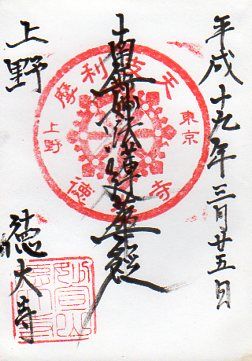 平成十九年三月廿五日
南無妙法蓮華経
上野
徳大寺
摩利支天
東京
上野
徳大寺